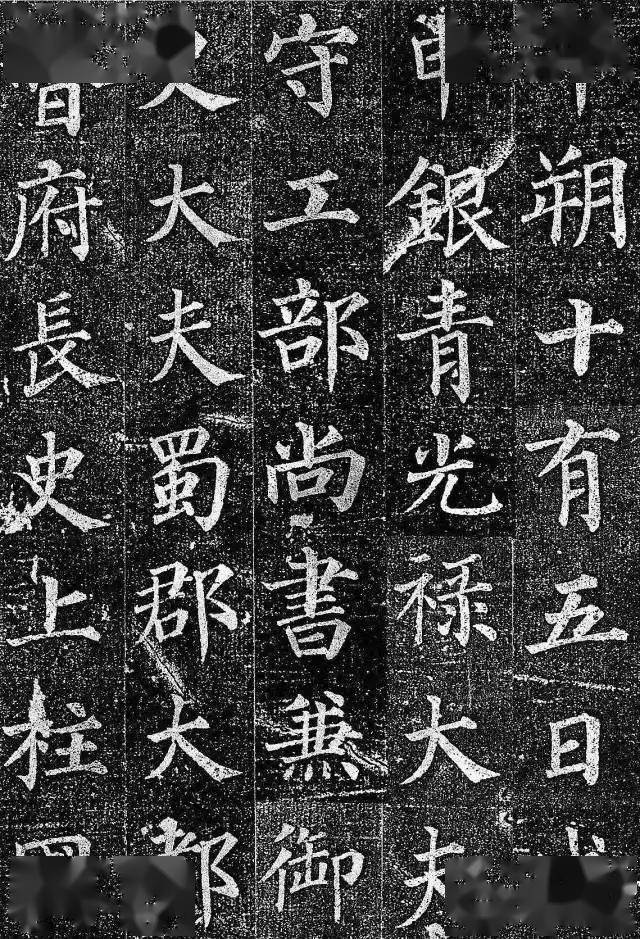 朔十有五日
銀青光禄大夫
守工部尚書兼御
大夫蜀郡大都
府長史上柱